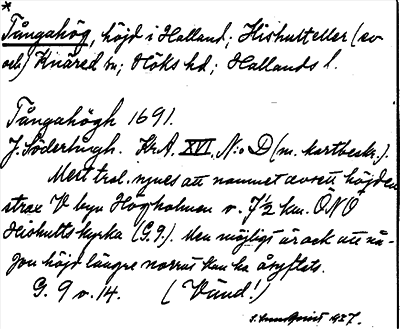 *
Tångahög, höjd i Halland; Hishulteller (ev
och) Knäred sn; Höks hd; Hallands l.
Tångahögh 1691.
J. Söderlingh. Kr.A. XVI. N:o D (m. kartbeskr.).
Mest trol. synes att namnet avsett höjden
strax V byn Högholmen v. 7½ km. ÖNÖ
Hishults kyrka (G.9.). Men möjligt är ock att nå-
gon höjd längre norrut kan ha åsyftats.
G. 9 v. 14. (Vänd!)
1927.